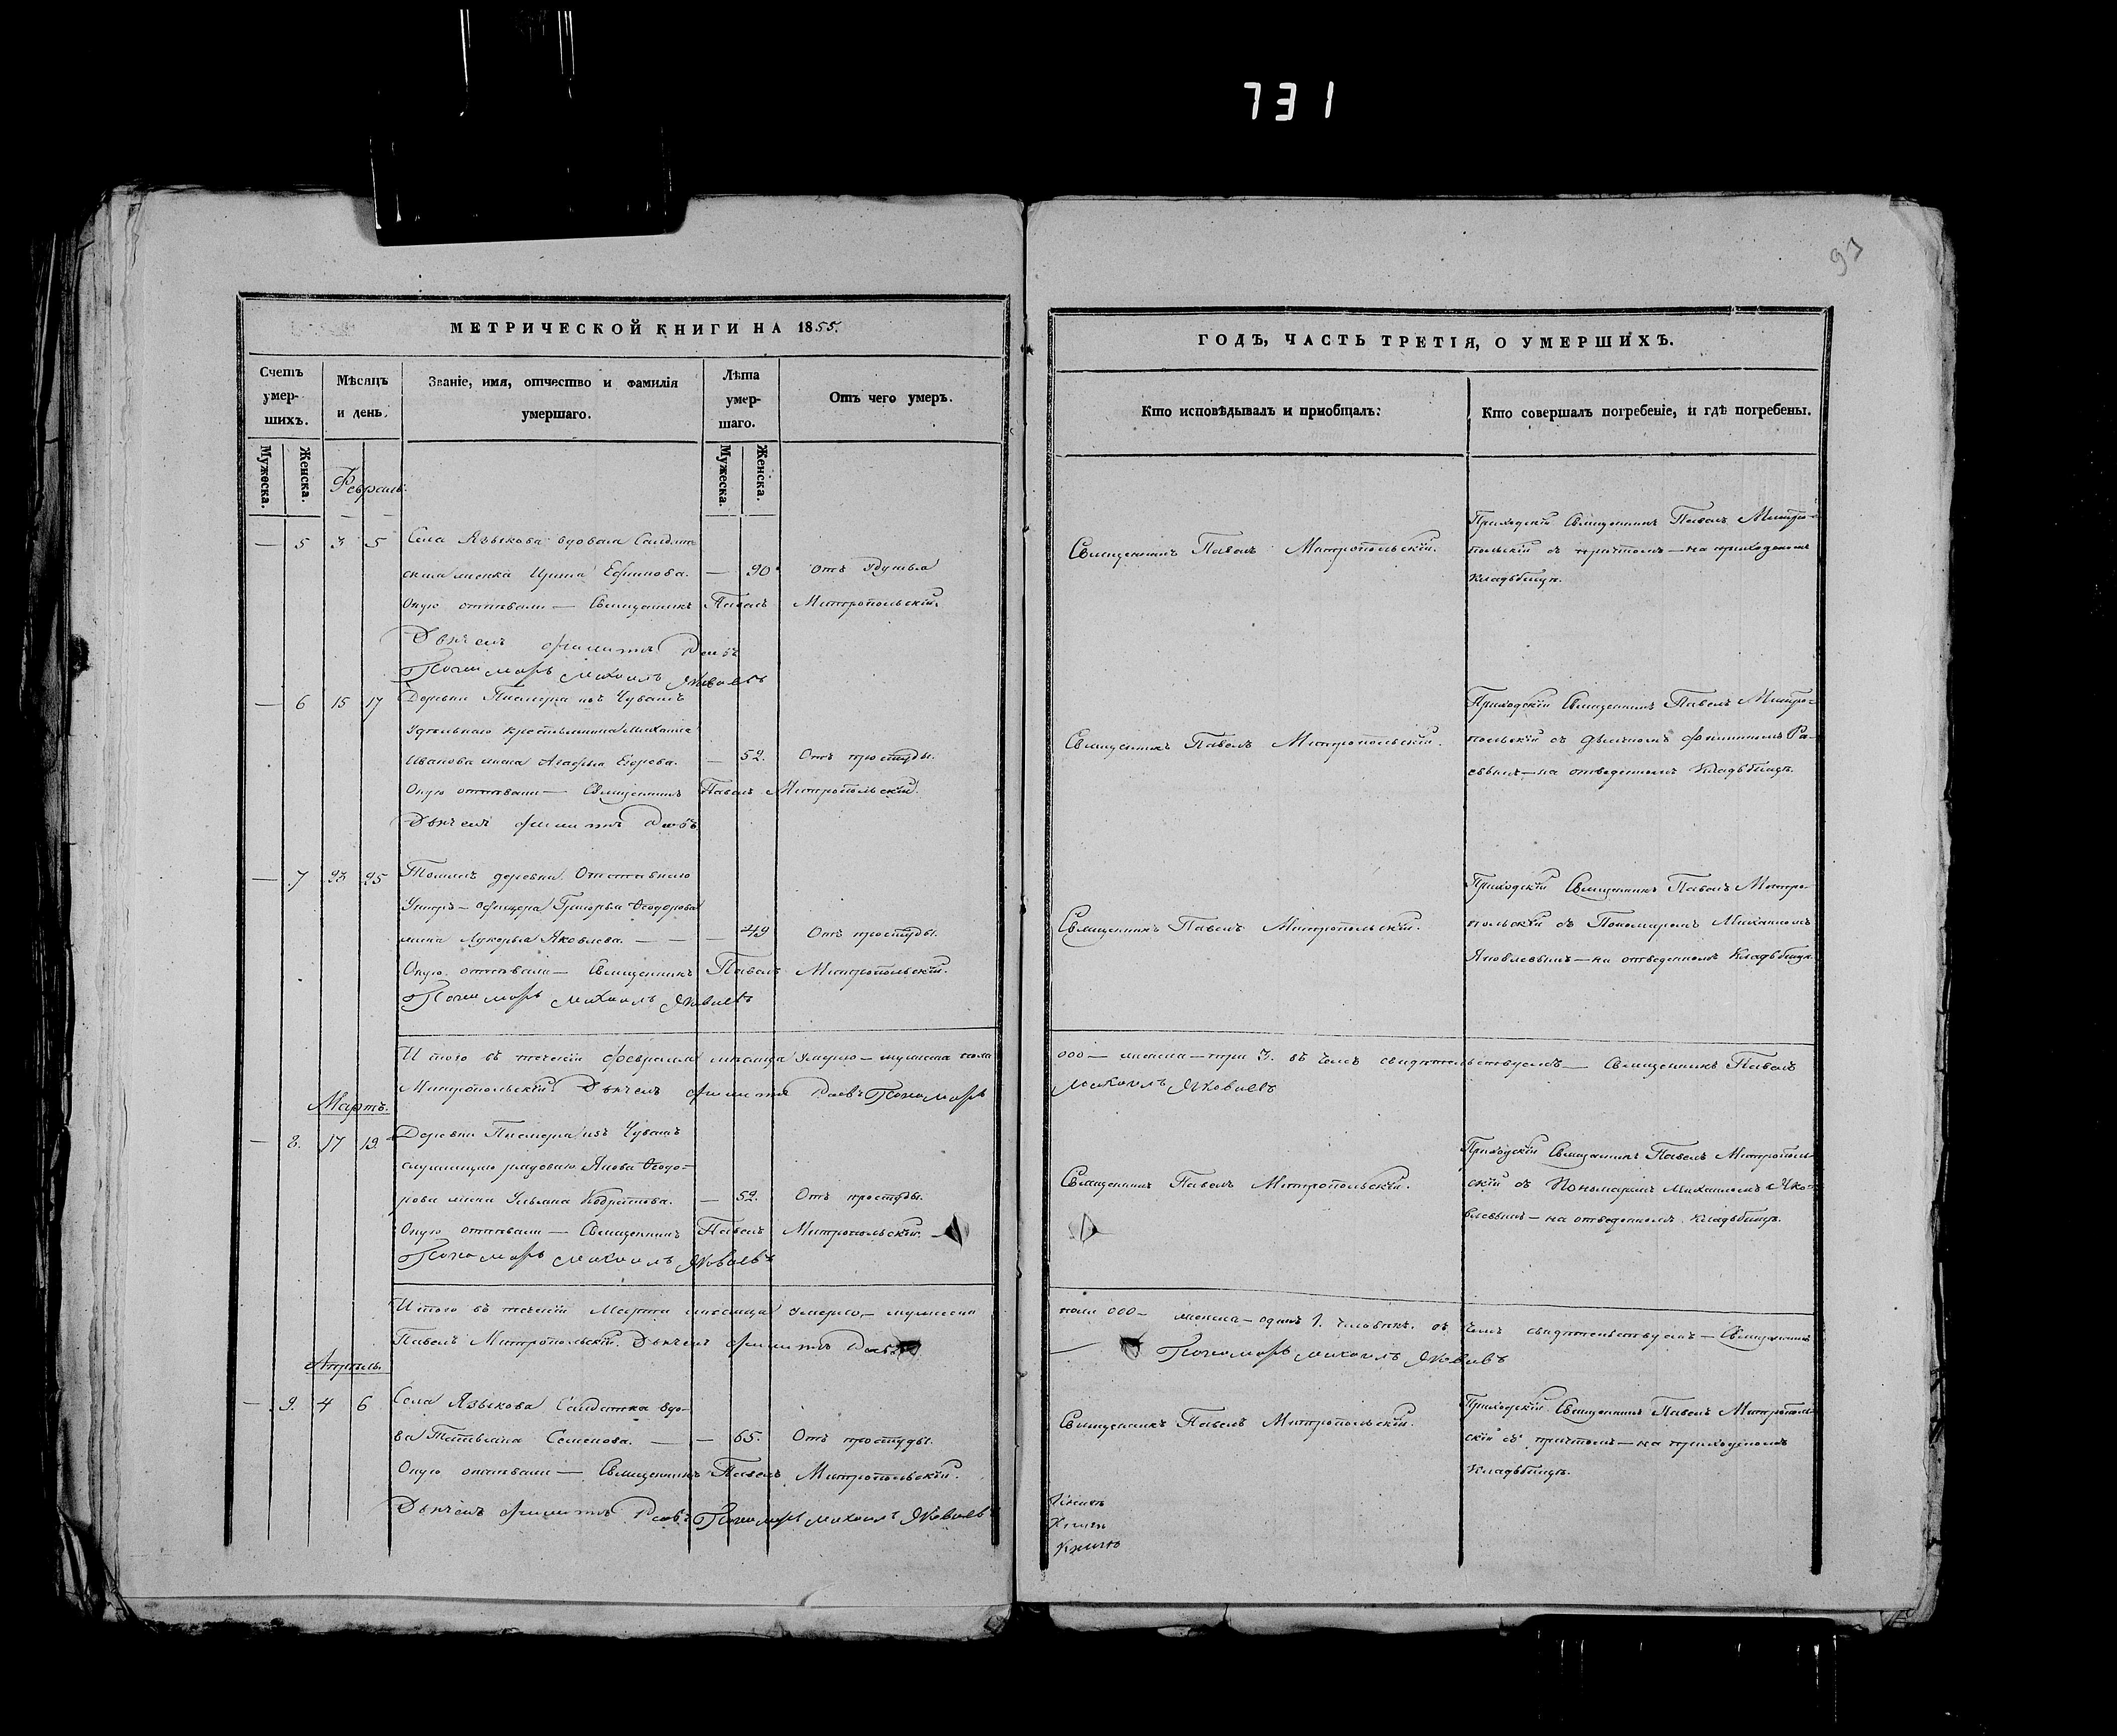 731
93
МЕТРИЧЕСКОЙ КНИГИ НА 1855.
ГОДЪ, ЧАСТЬ ТРЕТІЯ, О УМЕРШИХЪ.
Счетъ умер-
шихъ.
Мѣсяцъ
и день.
Званіе, имя, отчество и фамилія
умершаго.
Лѣта
умер-
шаго.
Отъ чего умеръ.
Кто исповѣдывалъ и пріобщалъ:
Кто совершалъ погребеніе, и гдѣ погребены.
Мужеска.
Женска.
Мужеска.
Женска.
Февраль.
— 5 3 5 Села Языкова вдовая Солдат-
ская женка Ирина Ефимова. — 90 отъ удушья
Оную отпѣвали — Священникъ Павелъ Митропольскій.
Дьячекъ Филиппъ Раевъ
Пономарь Михаилъ Яковлевъ
Священникъ Павелъ Митропольскій.
Приходскій Священникъ Павелъ Митро-
польскій съ причтомъ — на приходскомъ
Кладбищѣ.
— 6 15 17 Деревни Писмерка изъ Чувашъ
Удѣльнаго крестьянина Михаила
Иванова жена Агафья Егорова. — 52. Отъ простуды.
Оную отпѣвали — Священникъ Павелъ Митропольскій.
Дьячекъ Филиппъ Раевъ
Священникъ Павелъ Митропольскій.
Приходскій Священникъ Павелъ Митро-
польскій съ дьячкомъ Филиппомъ Ра-
евымъ — на отведенномъ Кладбищѣ.
— 7 23 25 Тойже деревни Отставнаго
Унтеръ-офицера Григорья Ѳеодорова
жена Лукерья Яковлева. — — — 49 Отъ простуды.
Оную отпѣвали — Священникъ Павелъ Митропольскій.
Пономарь Михаилъ Яковлевъ
Священникъ Павелъ Митропольскій.
Приходскій Священникъ Павелъ Митро-
польскій съ Пономаремъ Михаиломъ
Яковлевымъ — на отведенномъ Кладбищѣ.
Итого въ теченіи февраля мѣсяца умерло — мужеска пола 000 — женска — три 3. въ чемъ свидѣтельствуемъ — Священникъ Павелъ
Митропольскій. Дьячекъ Филиппъ Раевъ Пономарь Михаилъ Яковлевъ
Мартъ.
— 8. 17 19 Деревни Писмерка изъ Чувашъ
служащаго рядоваго Якова Ѳеодо-
рова жена Ульяна — 52. Отъ простуды.
Оную отпѣвали — Священникъ Павелъ Митропольскій. —
Пономарь Михаилъ Яковлевъ
Священникъ Павелъ Митропольскій.
Приходскій Священникъ Павелъ Митрополь-
скій съ Пономаремъ Михаиломъ Яко-
влевымъ — на отведенномъ Кладбищѣ.
Итого въ теченіи Марта мѣсяца умерло — мужеска пола 000 — женска — одинъ 1. человѣкъ. въ чемъ свидѣтельствуемъ — Священникъ
Павелъ Митропольскій. Дьячекъ Филиппъ Раевъ — Пономарь Михаилъ Яковлевъ
Апрѣль.
— 9. 4 6 Села Языкова Солдатка вдо-
ва Татьяна Семенова. — — 65. Отъ простуды.
Оную отпѣвали — Священникъ Павелъ Митропольскій.
Дьячекъ Филиппъ Раевъ Пономарь Михаилъ Яковлевъ
Священникъ Павелъ Митропольскій.
Приходскій Священникъ Павелъ Митрополь-
скій съ причтомъ — на приходскомъ
Кладбищѣ.